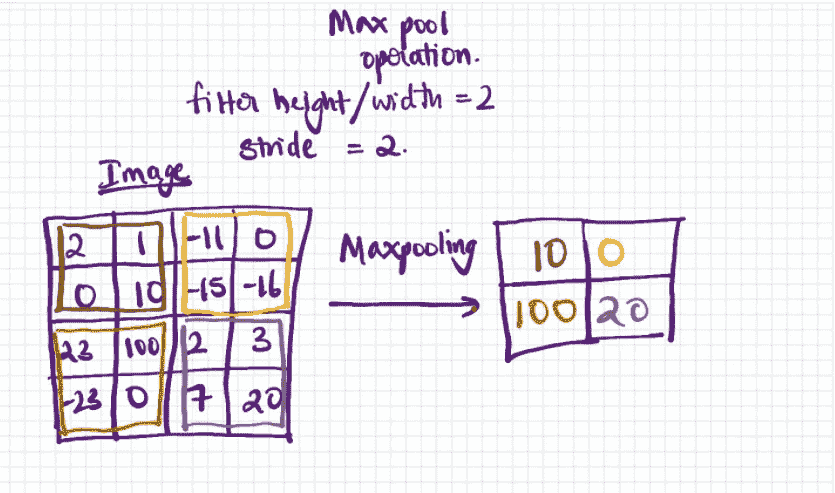 Max pool
operation.
filter height/width = 2
stride = 2.
Image
2 1 -11 0
0 10 -15 -16
23 100 2 3
-23 0 7 20
Maxpooling
10 0
100 20